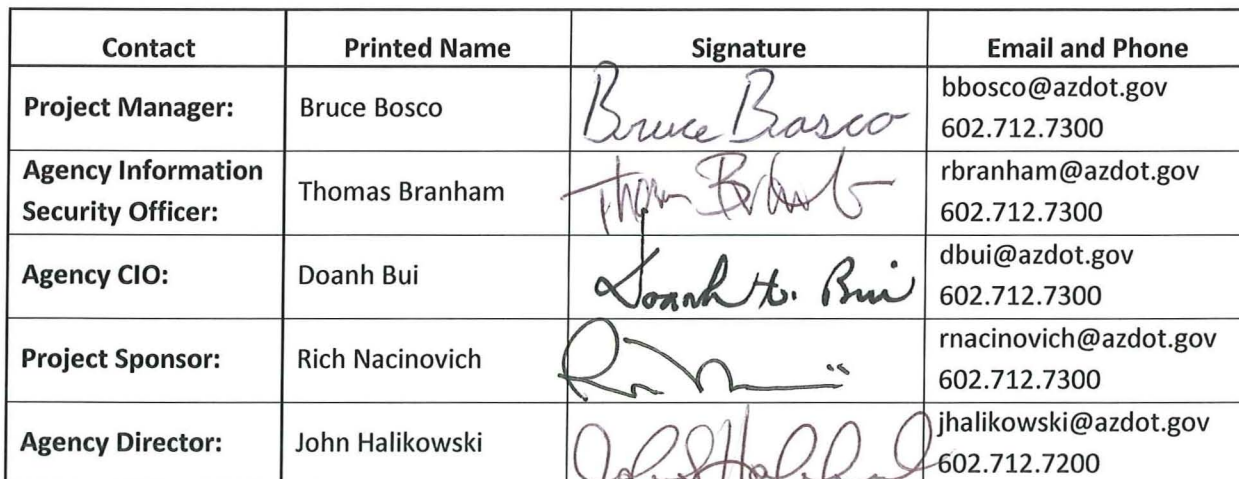 Contact Printed Name Signature Email and Phone
Project Manager: Bruce Bosco Bruce Bosco bbosco@azdot.gov
602.712.7300
Agency Information
Security Officer: Thomas Branham rbranham@azdot.gov
602.712.7300
Agency CIO: Doanh Bui Doanh H. Bui dbui@azdot.gov
602.712.7300
Project Sponsor: Rich Nacinovich rnacinovich@azdot.gov
602.712.7300
Agency Director: John Halikowski jhalikowski@azdot.gov
602.712.7200